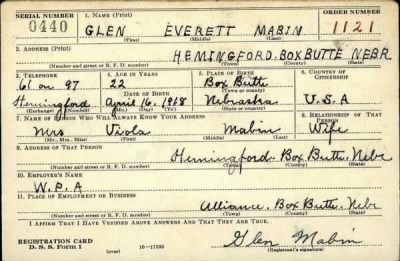 SERIAL NUMBER 1. NAME (Print) ORDER NUMBER
0440 GLEN EVERETT MABIN 1121
(First) (Middle) (Last)
2. ADDRESS (Print)
HEMINGFORD. BOX BUTTE NEBR
(Number and street or R. F. D. number) (Town) (County) (State)
3. TELEPHONE 4. AGE IN YEARS 5. PLACE OF BIRTH 6. COUNTRY OF CITIZENSHIP
61 on 97 22 Box Butte
DATE OF BIRTH (Town or county)
Hemingford April 16, 1918 Nebraska U.S.A
(Exchange) (Number) (Mo.) (Day) (Yr.) (State or country)
7. NAME OF PERSON WHO WILL ALWAYS KNOW YOUR ADDRESS 8. RELATIONSHIP OF THAT PERSON
Mrs Viola Mabin Wife
(Mr., Mrs., Miss) (First) (Middle) (Last)
9. ADDRESS OF THAT PERSON
Hemingford. Box Butte. Nebr
(Number and street or R. F. D. number) (Town) (County) (State)
10. EMPLOYER'S NAME
W.P.A
11. PLACE OF EMPLOYMENT OR BUSINESS
Alliance. Box Butte. Nebr
(Number and street or R. F. D. number) (Town) (County) (State)
I AFFIRM THAT I HAVE VERIFIED ABOVE ANSWERS AND THAT THEY ARE TRUE.
REGISTRATION CARD
D. S. S. Form 1 (over) 16—17105 Glen Mabin
(Registrant's signature)